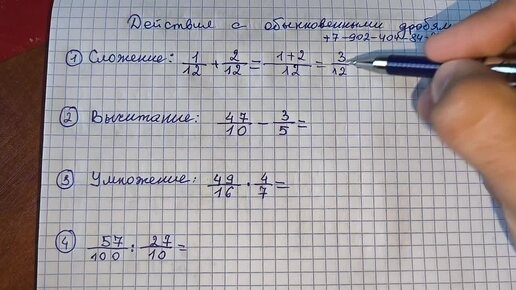 Действия с обыкновенными дробям
+7-902-404-34-
① Сложение: 1/12 + 2/12 = 1+2/12 = 3/12
② Вычитание: 47/10 - 3/5 =
③ Умножение: 49/16 · 4/7 =
④ 57/100 : 27/10 =